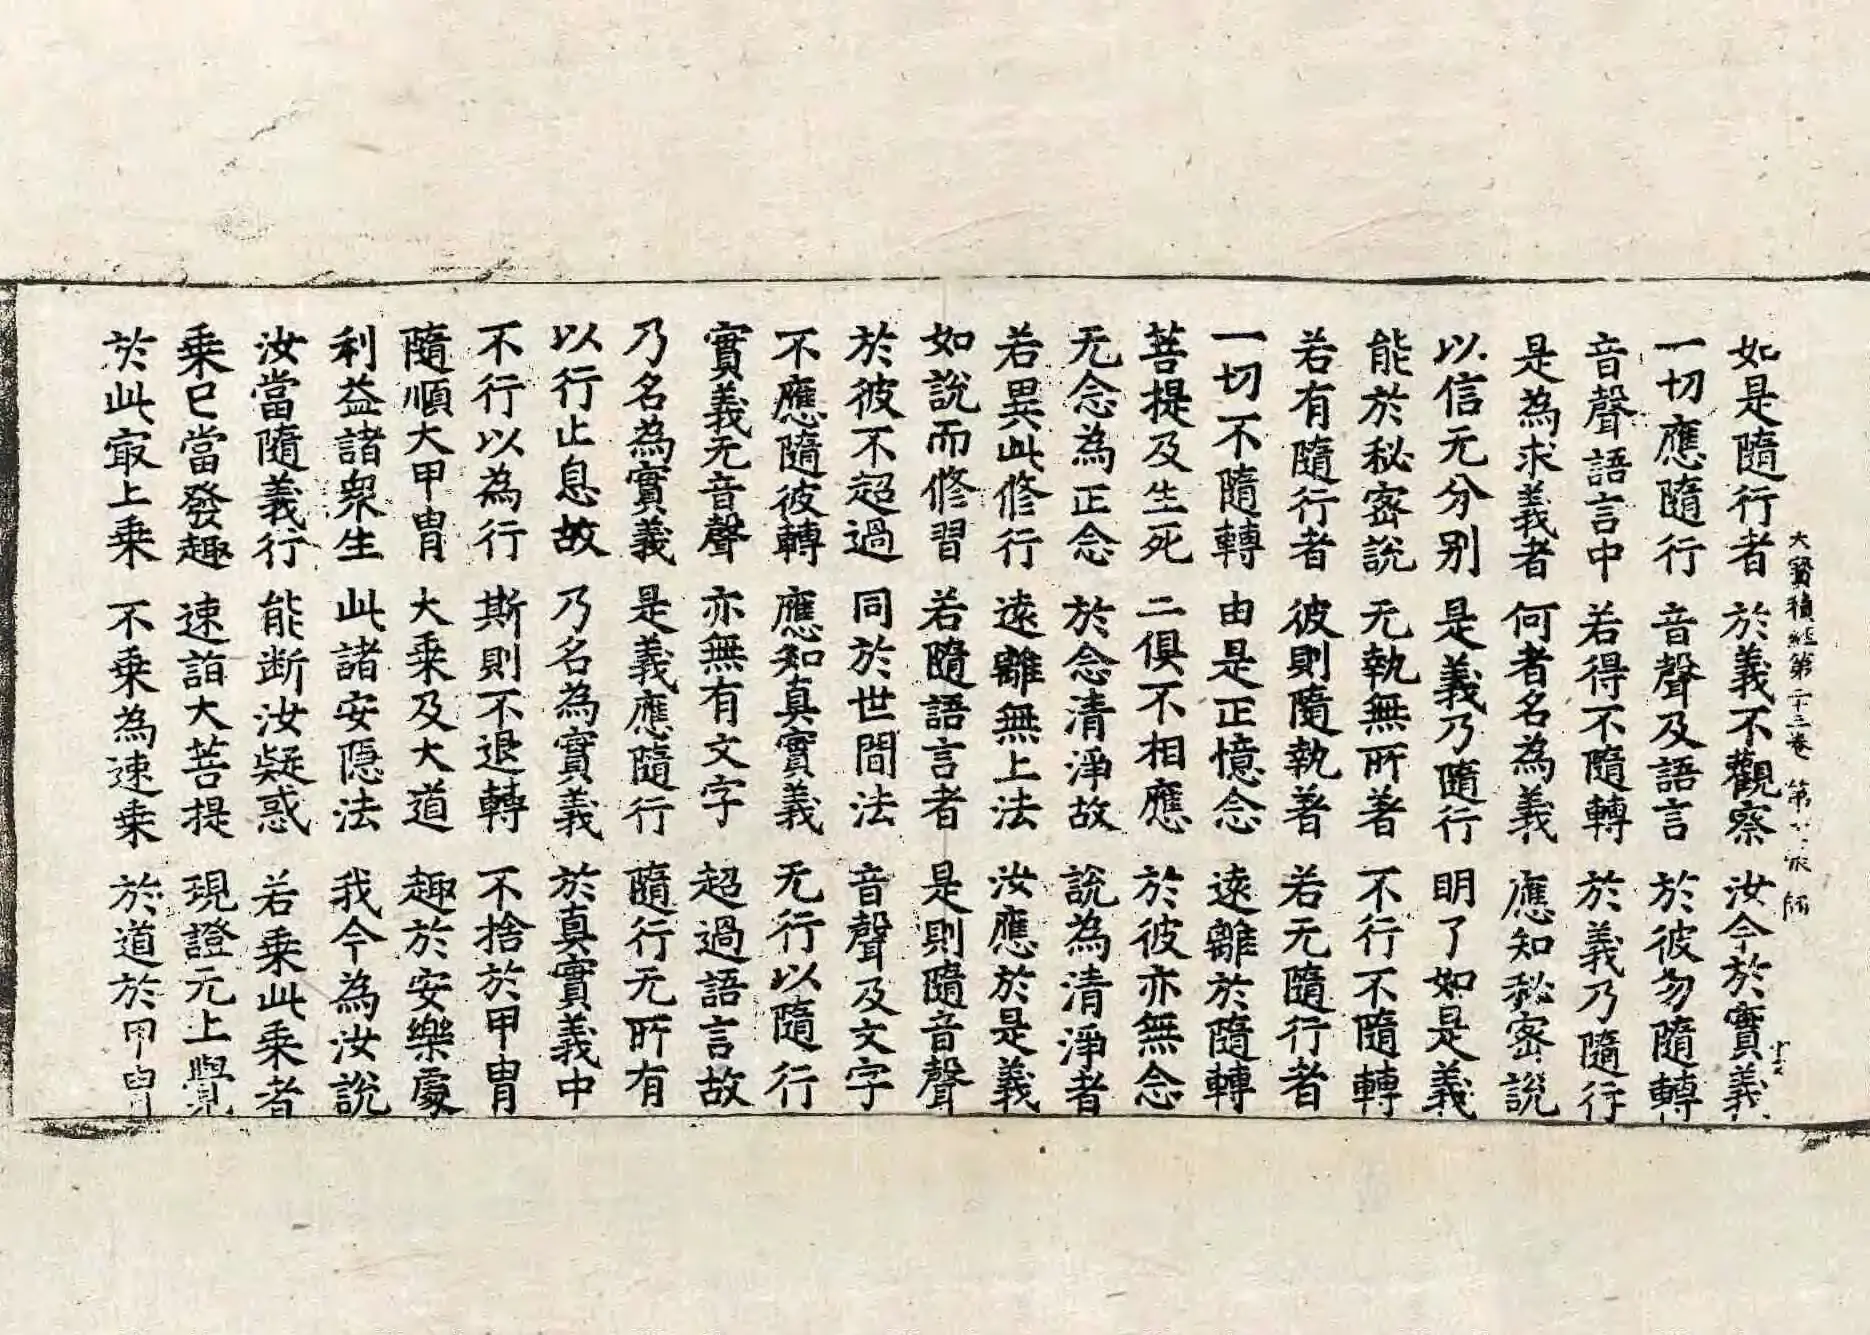 大寶積經第二十三卷 第 張 師
如是隨行者 於義不觀察 汝今於實義
一切應隨行 音聲及語言 於彼勿隨轉
音聲語言中 若得不隨轉 於義乃隨行
是為求義者 何者名為義 應知秘密說
以信无分別 是義乃隨行 明了如是義
能於秘密說 无執無所著 不行不隨轉
若有隨行者 彼則隨執著 若无隨行者
一切不隨轉 由是正憶念 遠離於隨轉
菩提及生死 二俱不相應 於彼亦無念
无念為正念 於念清淨故 說為清淨者
若異此修行 遠離無上法 汝應於是義
如說而修習 若隨語言者 是則隨音聲
於彼不超過 同於世間法 音聲及文字
不應隨彼轉 應知真實義 无行以隨行
實義无音聲 亦無有文字 超過語言故
乃名為實義 是義應隨行 隨行无所有
以行止息故 乃名為實義 於真實義中
不行以為行 斯則不退轉 不捨於甲冑
隨順大甲冑 大乘及大道 趣於安樂處
利益諸衆生 此諸安隱法 我今為汝說
汝當隨義行 能断汝疑惑 若乘此乘者
乘已當發趣 速詣大菩提 現證无上覺
於此㝡上乘 不乘為速乘 於道於甲冑